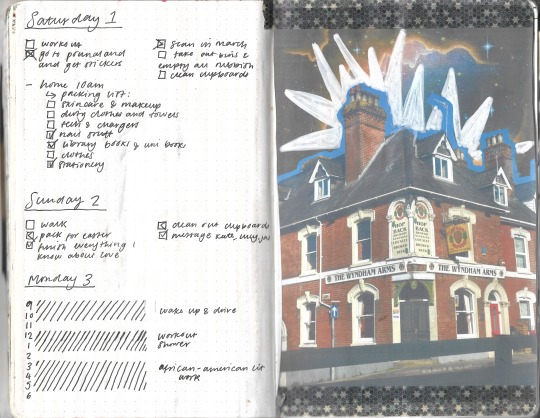 Saturday 1
workout
go to poundland
and get stickers
scan in march
take out bins &
empty all rubbish
clean cupboards
- home 10am
↳ packing list:
skincare & makeup
dirty clothes and towels
tech & chargers
nail stuff
library books & uni book
clothes
stationery
Sunday 2
walk
pack for easter
finish everything i
know about love
clean out cupboards
message kate,
Monday 3
9
10
11
12
1
2
3
4
5
6
wake up & drive
workout
shower
african-american lit
work
HOP
BACK
HOP
BACK
THE WYNDHAM ARMS
THE WYNDHAM ARMS